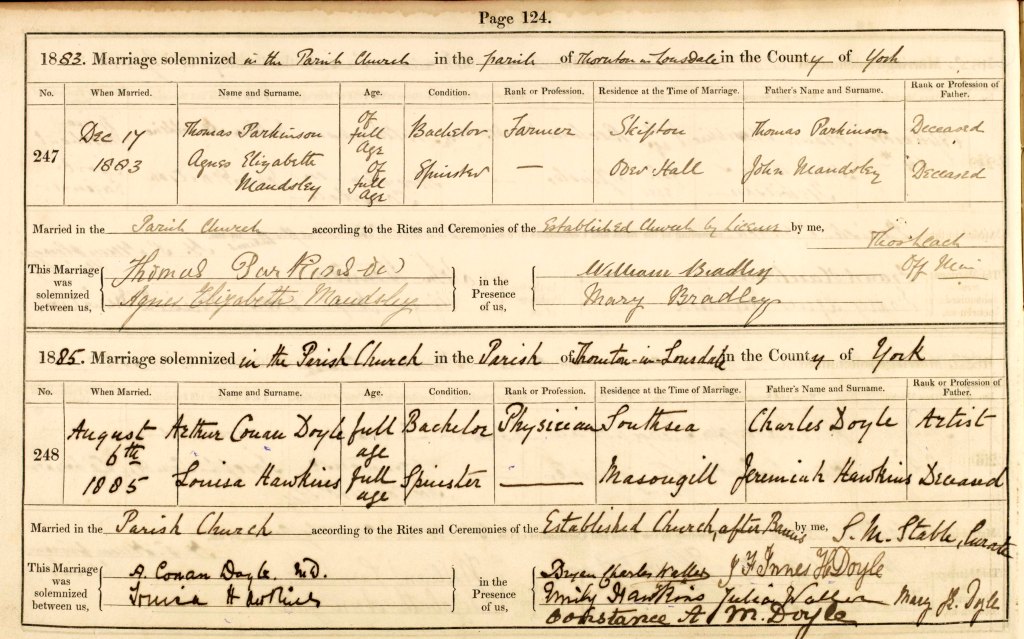 Page 124.
1883. Marriage solemnized in the Parish Church in the parish of Thornton in Lonsdale in the County of York
No. When Married. Name and Surname. Age. Condition. Rank or Profession. Residence at the Time of Marriage. Father's Name and Surname. Rank or Profession of Father.
247 Dec 17 1883 Thomas Parkinson Of full Age Bachelor Farmer Skipton Thomas Parkinson Deceased
Agnes Elizabeth Mandsley Of full Age Spinster — Hall John Mandsley Deceased
Married in the Parish Church according to the Rites and Ceremonies of the Established Church by Licence by me,
Off Min
This Marriage was solemnized between us, Thomas Parkinson in the Presence of us, William Bradley
Agnes Elizabeth Mandsley Mary Bradley
1885. Marriage solemnized in the Parish Church in the Parish of Thornton-in-Lonsdale in the County of York
No. When Married. Name and Surname. Age. Condition. Rank or Profession. Residence at the Time of Marriage. Father's Name and Surname. Rank or Profession of Father.
248 August 6th 1885 Arthur Conan Doyle full age Bachelor Physician Southsea Charles Doyle Artist
Louisa Hawkins full age Spinster — Masongill Jeremiah Hawkins Deceased
Married in the Parish Church according to the Rites and Ceremonies of the Established Church, after Banns by me, S. M. Stable, Curate
This Marriage was solemnized between us, A. Conan Doyle. M.D. in the Presence of us, Bryan Charles Waller J F Innes H Doyle
Louisa Hawkins Emily Hawkins Julia Waller Mary J. Doyle
Constance A M. Doyle